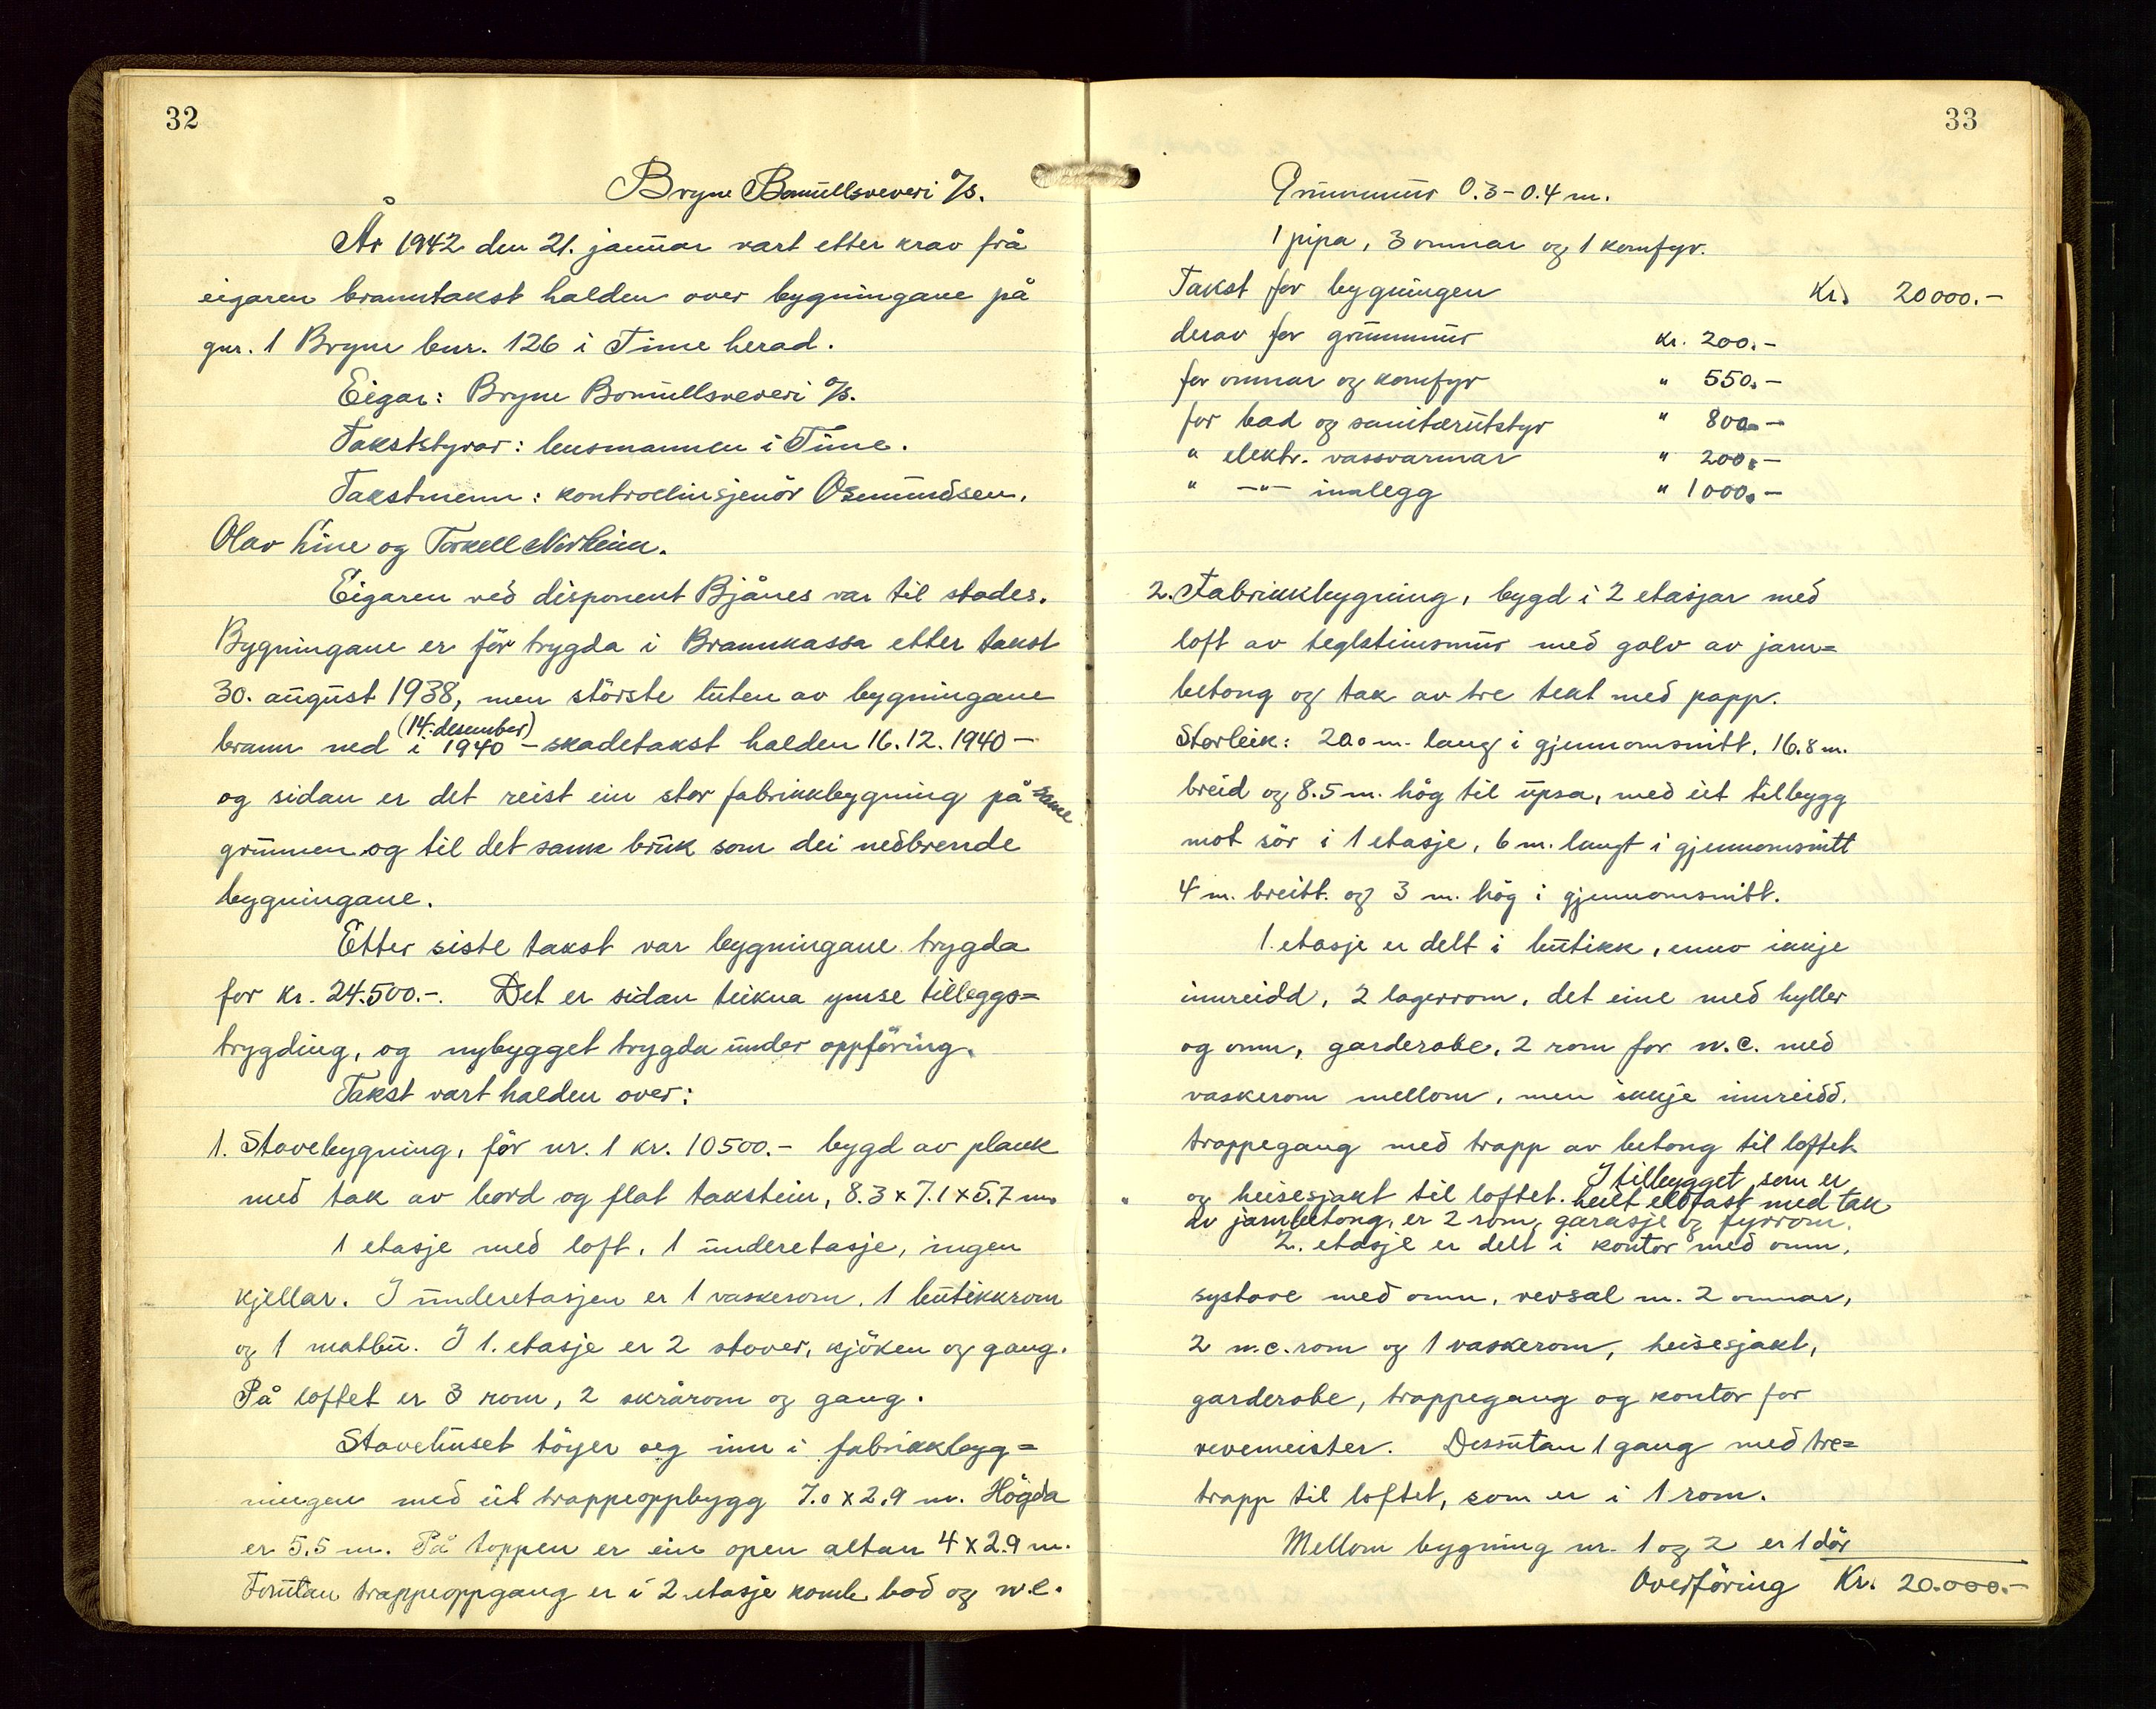 32
Bryne Bomullsveveri A/S.
År 1942 den 21. januar vart etter krav frå
eigaren branntakst halden over bygningane på
gnr. 1 Bryne bnr. 126 i Time herad.
Eigar: Bryne Bomullsveveri A/S.
Takststyrar: lensmannen i Time.
Takstmenn: kontrollinsjenör Osmundsen,
Olav Line og Torkell Norheim.
Eigaren ved disponent Bjånes var til stades.
Bygningane er för trygda i Brannkassa etter takst
30. august 1938, men störste luten av bygningane
(14. desember)
brann ned i 1940 – skadetakst halden 16.12.1940 –
og sidan er det reist ein stor fabrikkbygning på same
grunnen og til det same bruk som dei nedbrende
bygningane.
Etter siste takst var bygningane trygda
for kr. 24.500.-. Det er sidan teikna ymse tilleggs=
trygding, og nybygget trygda under oppföring.
Takst vart halden over:
1. Stovebygning, för nr. 1 kr. 10500.- bygd av plank
med tak av bord og flat takstein, 8.3 x 7.1 x 5.7 m.
1 etasje med loft, 1 underetasje, ingen
kjellar. I underetasjen er 1 vaskerom, 1 butikkrom
og 1 matbu. I 1. etasje er 2 stover, kjöken og gang.
På loftet er 3 rom, 2 skrårom og gang.
Stovehuset töyer seg inn i fabrikkbyg=
ningen med eit trappeoppbygg 7.0 x 2.9 m. Högda
er 5.5 m. På toppen er ein open altan 4 x 2.9 m.
Forutan trappeoppgang er i 2. etasje komb. bad og w.c.
33
Grunnmur 0.3 - 0.4 m.
1 pipa, 3 omnar og 1 komfyr.
Takst for bygningen Kr. 20000.-
derav for grunnmur kr. 200.-
for omnar og komfyr " 550.-
for bad og sanitærutstyr " 800.-
" elektr. vassvarmar " 200.-
" -"- innlegg " 1000.-
2. Fabrikkbygning, bygd i 2 etasjar med
loft av teglsteinsmur med golv av jarn=
betong og tak av tre tekt med papp.
Storleik: 20.0 m. lang i gjennomsnitt, 16.8 m.
breid og 8.5 m. hög til upsa, med eit tilbygg
mot sör i 1 etasje, 6 m. langt i gjennomsnitt
4 m. breitt og 3 m. hög i gjennomsnitt.
1. etasje er delt i butikk, enno ikkje
innreidd, 2 lagerrom, det eine med hyller
og omn, garderobe, 2 rom for w.c. med
vaskerom mellom, men ikkje innreidd,
trappegang med trapp av betong til loftet
og heisesjakt til loftet. I tilbygget, som er heilt eldfast med tak
av jarnbetong, er 2 rom, garasje og fyrrom.
2. etasje er delt i kontor med omn,
systove med omn, vevsal m. 2 omnar,
2 w.c. rom og 1 vaskerom, heisesjakt,
garderobe, trappegang og kontor for
vevemeister. Dessutan 1 gang med tre=
trapp til loftet, som er i 1 rom.
Mellom bygning nr. 1 og 2 er 1 dör
Overföring Kr. 20.000.-